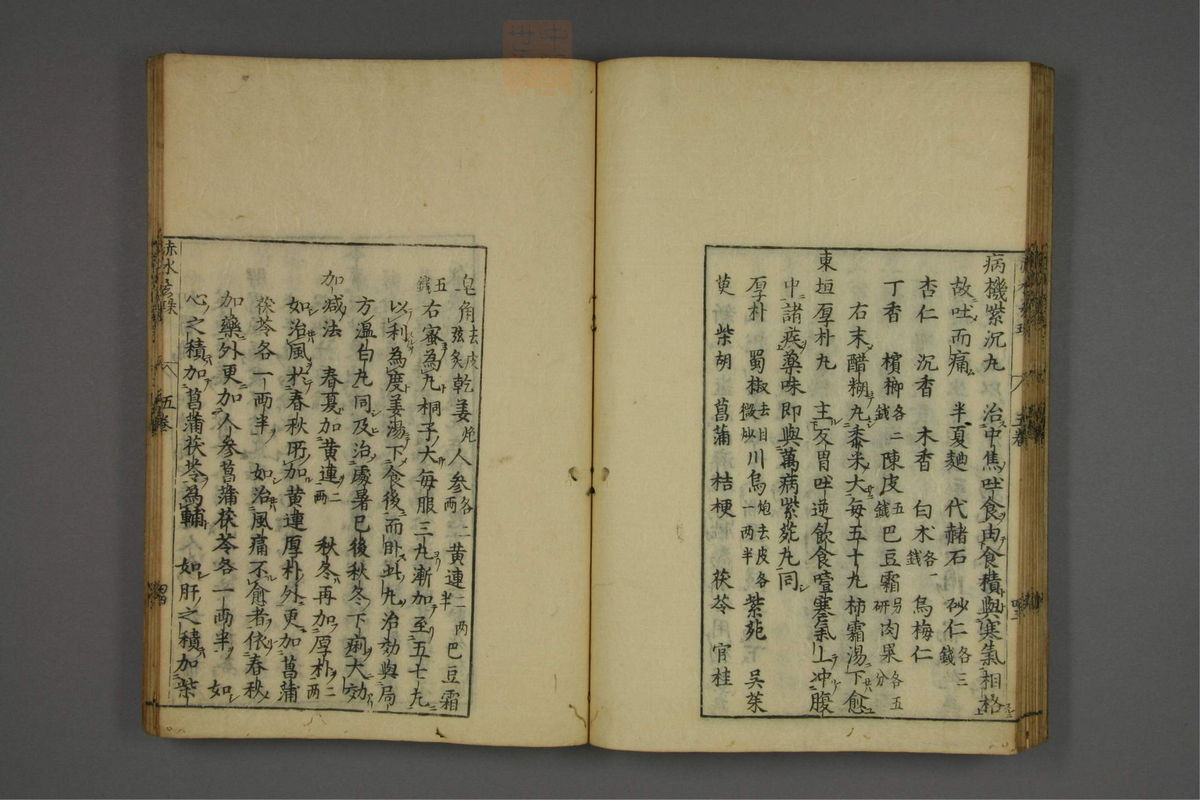 病機紫沉丸 治中焦吐食由食積與寒氣相格
故吐而痛 半夏麯 代赭石 砂仁各三錢
杏仁 沉香 木香 白朮各一錢 烏梅仁
丁香 檳榔各二錢 陳皮五錢 巴豆霜另研 肉果各五分
右末醋糊丸黍米大每五十丸柿霜湯下愈
東垣厚朴丸 主反胃吐逆飲食噎塞氣上冲腹
中諸疾藥味即與萬病紫菀丸同
厚朴 蜀椒去目微炒 川烏炮去皮各一兩半 紫菀 吳茱
萸 柴胡 菖蒲 桔梗 茯苓 官桂
皂角去皮弦炙 乾姜炮 人參各二兩 黄連二兩半 巴豆霜
五錢 右蜜為丸桐子大每服三丸漸加至五七丸
以利為度姜湯下食後而卧此丸治効與局
方温白丸同及治處暑已後秋冬下痢大効
加減法 春夏加黄連二兩 秋冬再加厚朴二兩
如治風於春秋所加黄連厚朴外更加菖蒲
茯苓各一兩半 如治風痛不愈者依春秋
加藥外更加人參菖蒲茯苓各一兩半 如
心之積加菖蒲茯苓為輔 如肝之積加柴
赤水玄珠 五卷